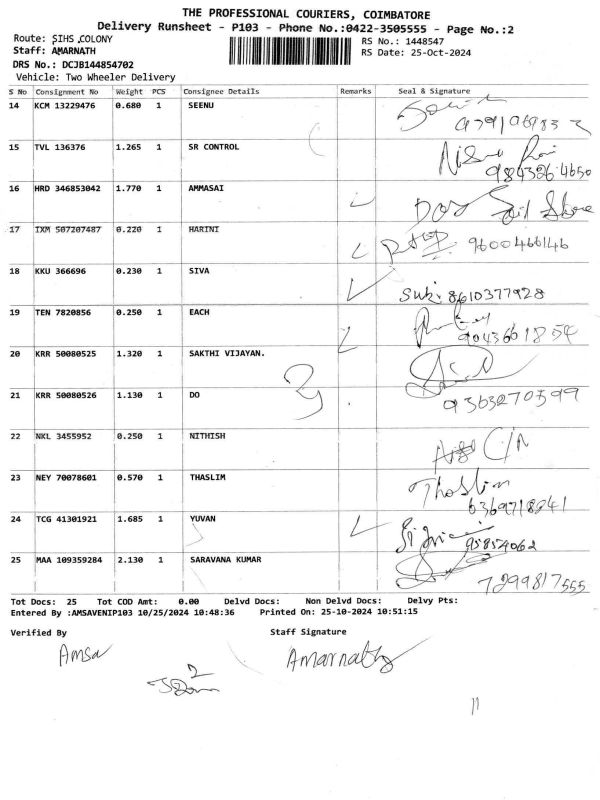 THE PROFESSIONAL COURIERS, COIMBATORE
Delivery Runsheet - P103 - Phone No.:0422-3505555 - Page No.:2
Route: SIHS COLONY
RS No.: 1448547
Staff: AMARNATH
RS Date: 25-Oct-2024
DRS No.: DCJB144854702
Vehicle: Two Wheeler Delivery
S No Consignment No Weight PCS Consignee Details Remarks Seal & Signature
14 KCM 13229476 0.680 1 SEENU
15 TVL 136376 1.265 1 SR CONTROL
9843264650
16 HRD 346853042 1.770 1 AMMASAI
17 IXM 507207487 0.220 1 HARINI
9600466146
18 KKU 366696 0.230 1 SIVA
8610377928
19 TEN 7820856 0.250 1 EACH
20 KRR 50080525 1.320 1 SAKTHI VIJAYAN.
21 KRR 50080526 1.130 1 DO
9363270599
22 NKL 3455952 0.250 1 NITHISH
23 NEY 70078601 0.570 1 THASLIM
Thaslim
24 TCG 41301921 1.685 1 YUVAN
25 MAA 109359284 2.130 1 SARAVANA KUMAR
7299817555
Tot Docs: 25 Tot COD Amt: 0.00 Delvd Docs: Non Delvd Docs: Delvy Pts:
Entered By :AMSAVENIP103 10/25/2024 10:48:36 Printed On: 25-10-2024 10:51:15
Verified By Staff Signature
Amsa
Amarnath